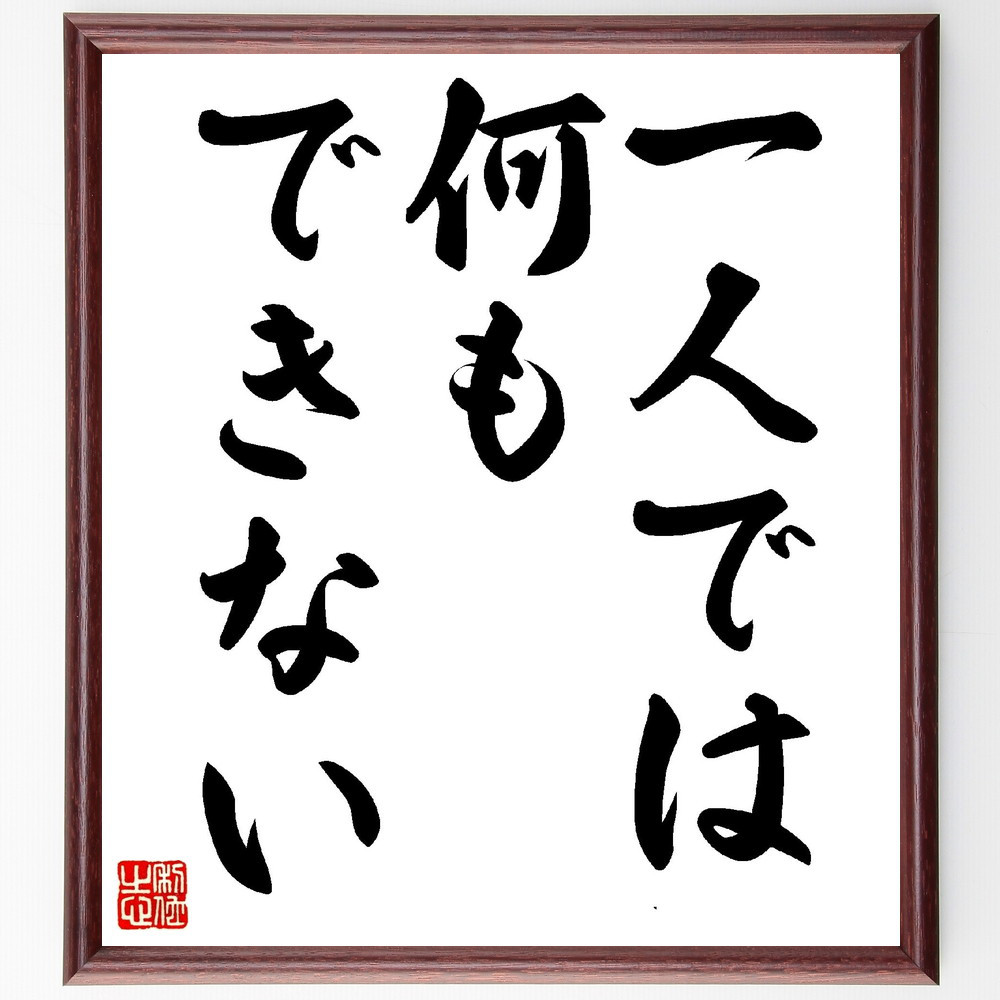 一人では
何も
できない